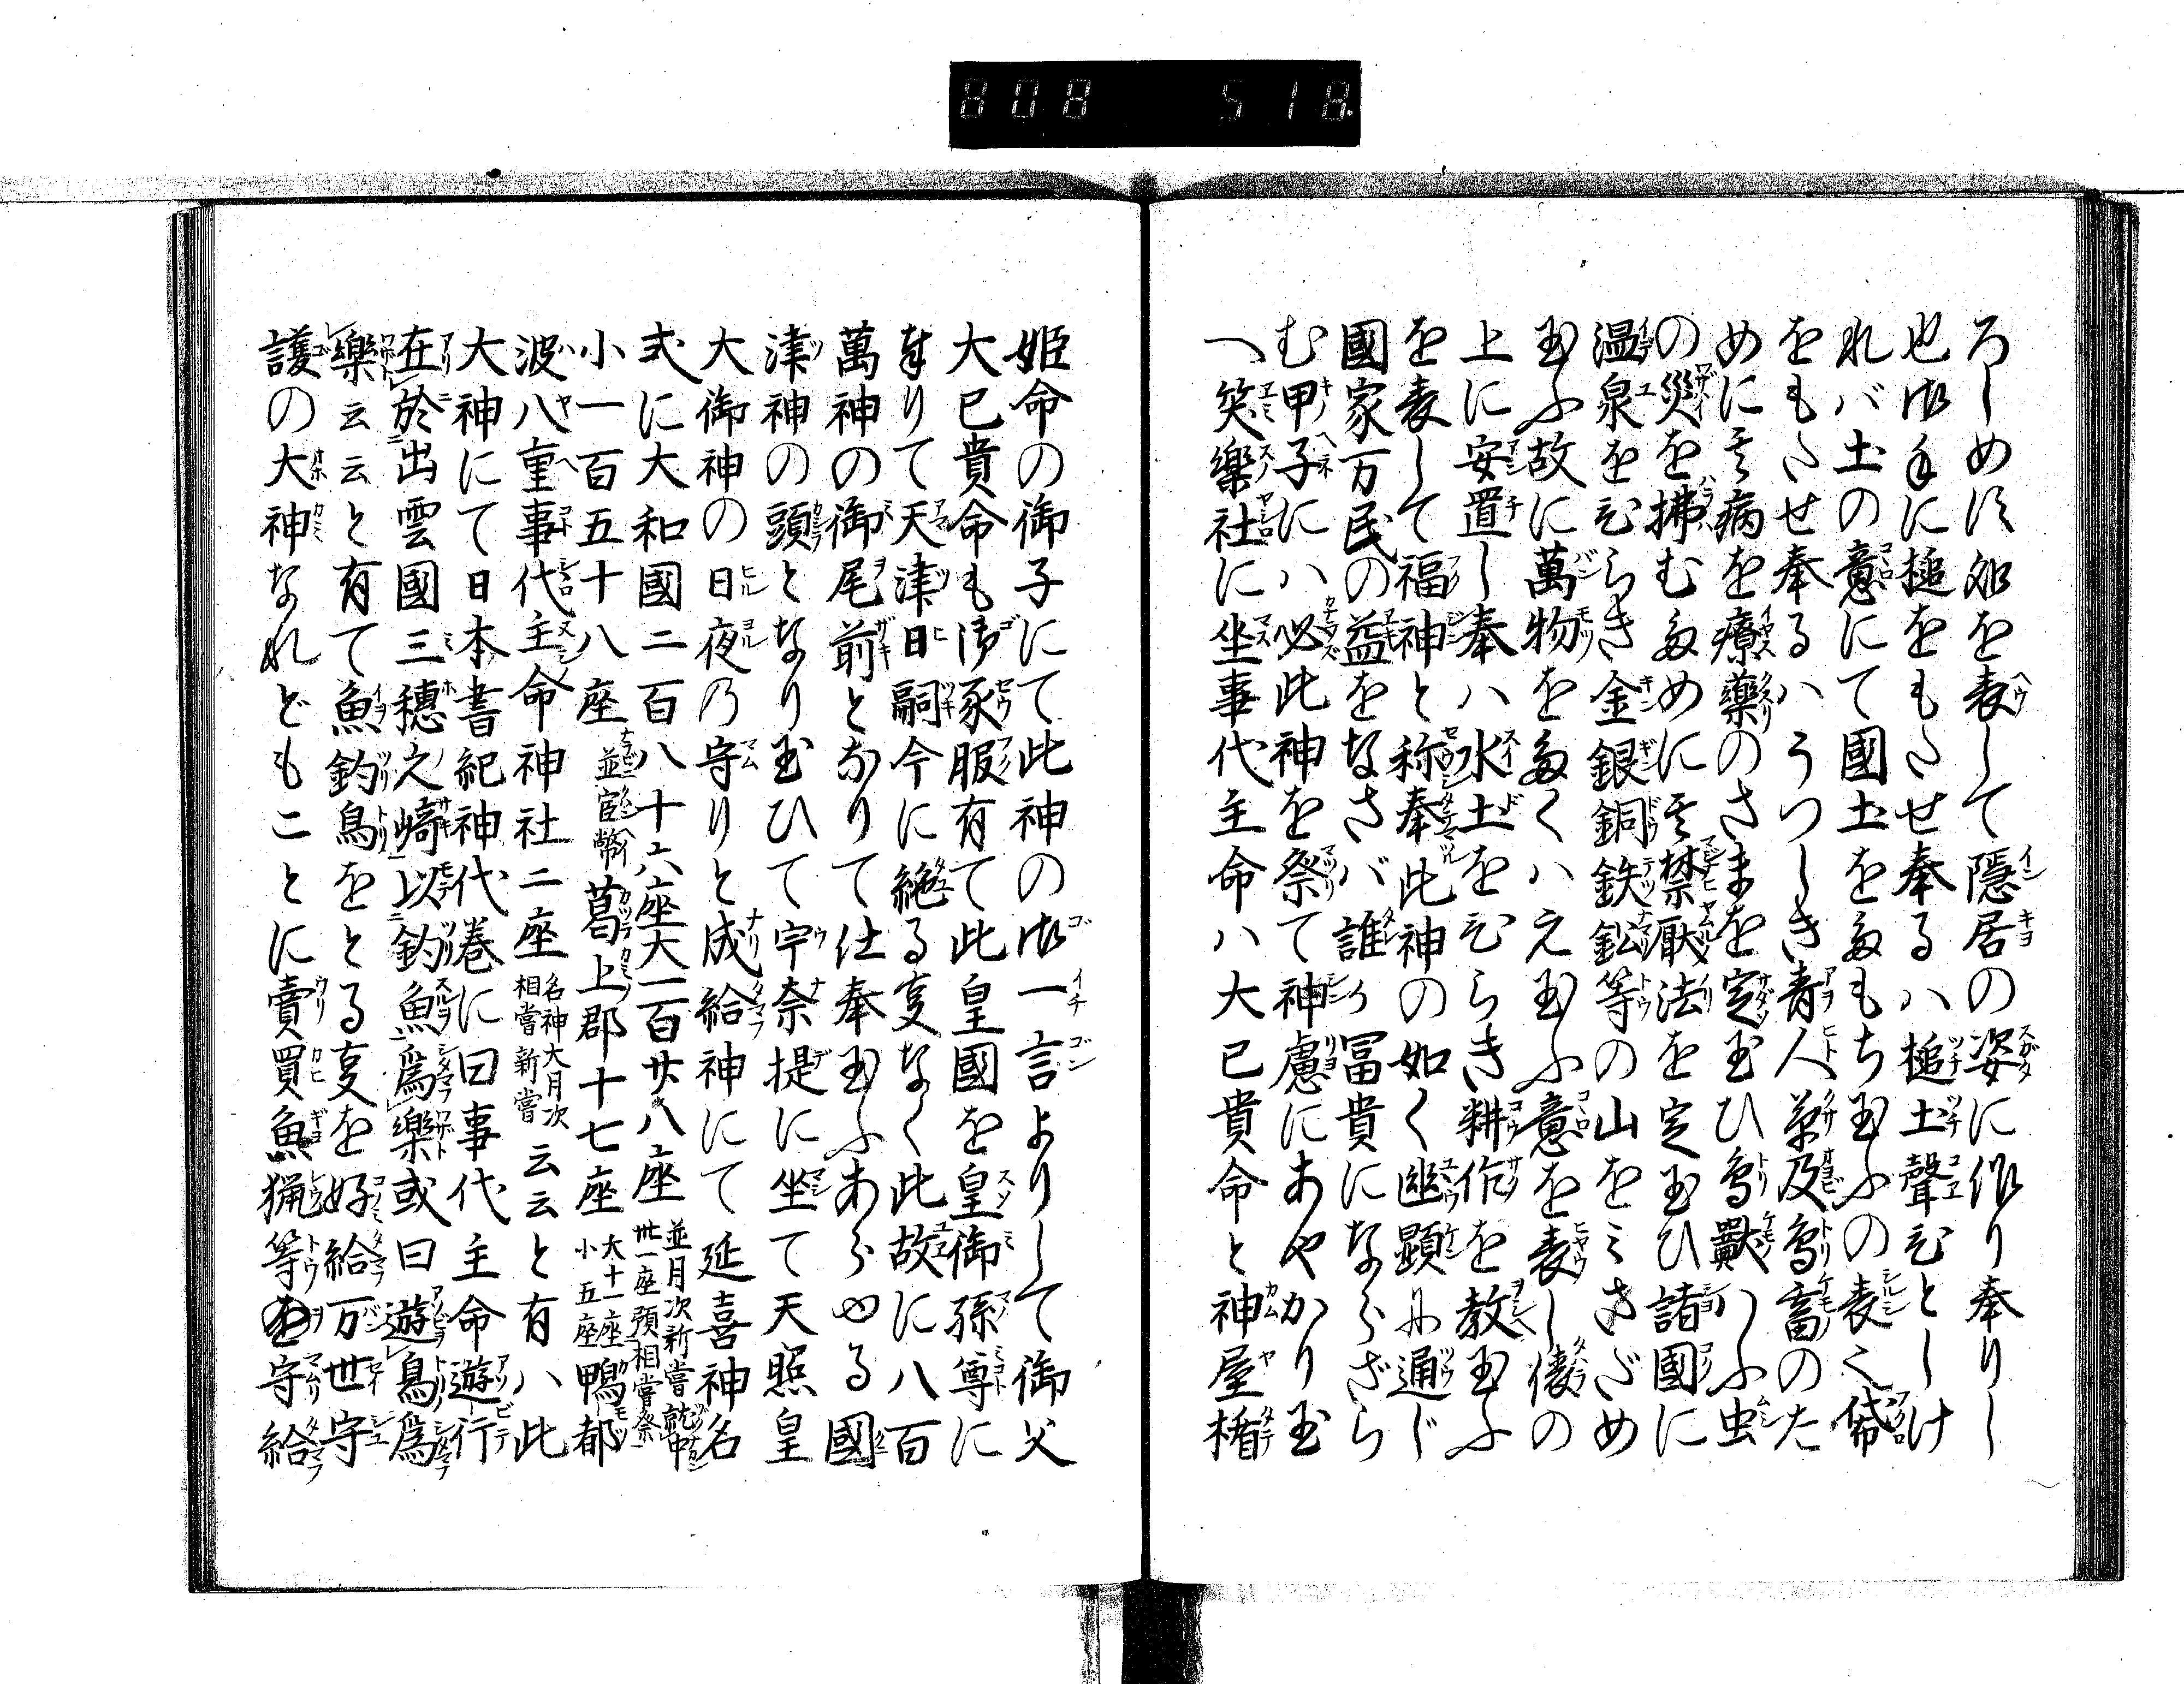 808 518
ろしめす如を表して隠居の姿に作り奉りし
也御手に槌をもたせ奉るハ槌土聲ひとしけ
れバ土の意にて國土をたもち玉ふの表之袋
をもたせ奉るハうつしき青人草及鳥畜のた
めに其病を療藥のさまを定玉ひ鳥獣はふ虫
の災を拂むためにその禁厭法を定玉ひ諸國に
温泉をひらき金銀銅鉄鉛等の山をミさだめ
玉ふ故に萬物を多くハえ玉ふ意を表し俵の
上に安置し奉ハ水土をひらき耕作を教玉ふ
を表して福神と称奉此神の如く幽顕に通じ
國家万民の益をなさバ誰か冨貴にならざら
む甲子にハ必此神を祭て神慮にあやかり玉
へ笑樂社に坐事代主命ハ大己貴命と神屋楯
姫命の御子にて此神の御一言よりして御父
大己貴命も御承服有て此皇國を皇御孫尊に
奉りて天津日嗣今に絶る叓なく此故に八百
萬神の御尾前となりて仕奉玉ふあらゆる國
津神の頭となり玉ひて宇奈提に坐て天照皇
大御神の日夜の守りと成給神にて延喜神名
式に大和國二百八十六座大一百廿八座並月次新嘗就中卅一座預相嘗祭
小一百五十八座並官幣葛上郡十七座大十二座小五座鴨都
波八重事代主命神社二座名神大月次相嘗新嘗云云と有ハ此
大神にて日本書紀神代巻に曰事代主命遊行
在於出雲國三穂之﨑以釣魚爲樂或曰遊鳥爲
樂云云と有て魚釣鳥をとる叓を好給万世守
護の大神なれどもことに賣買魚猟等を守給